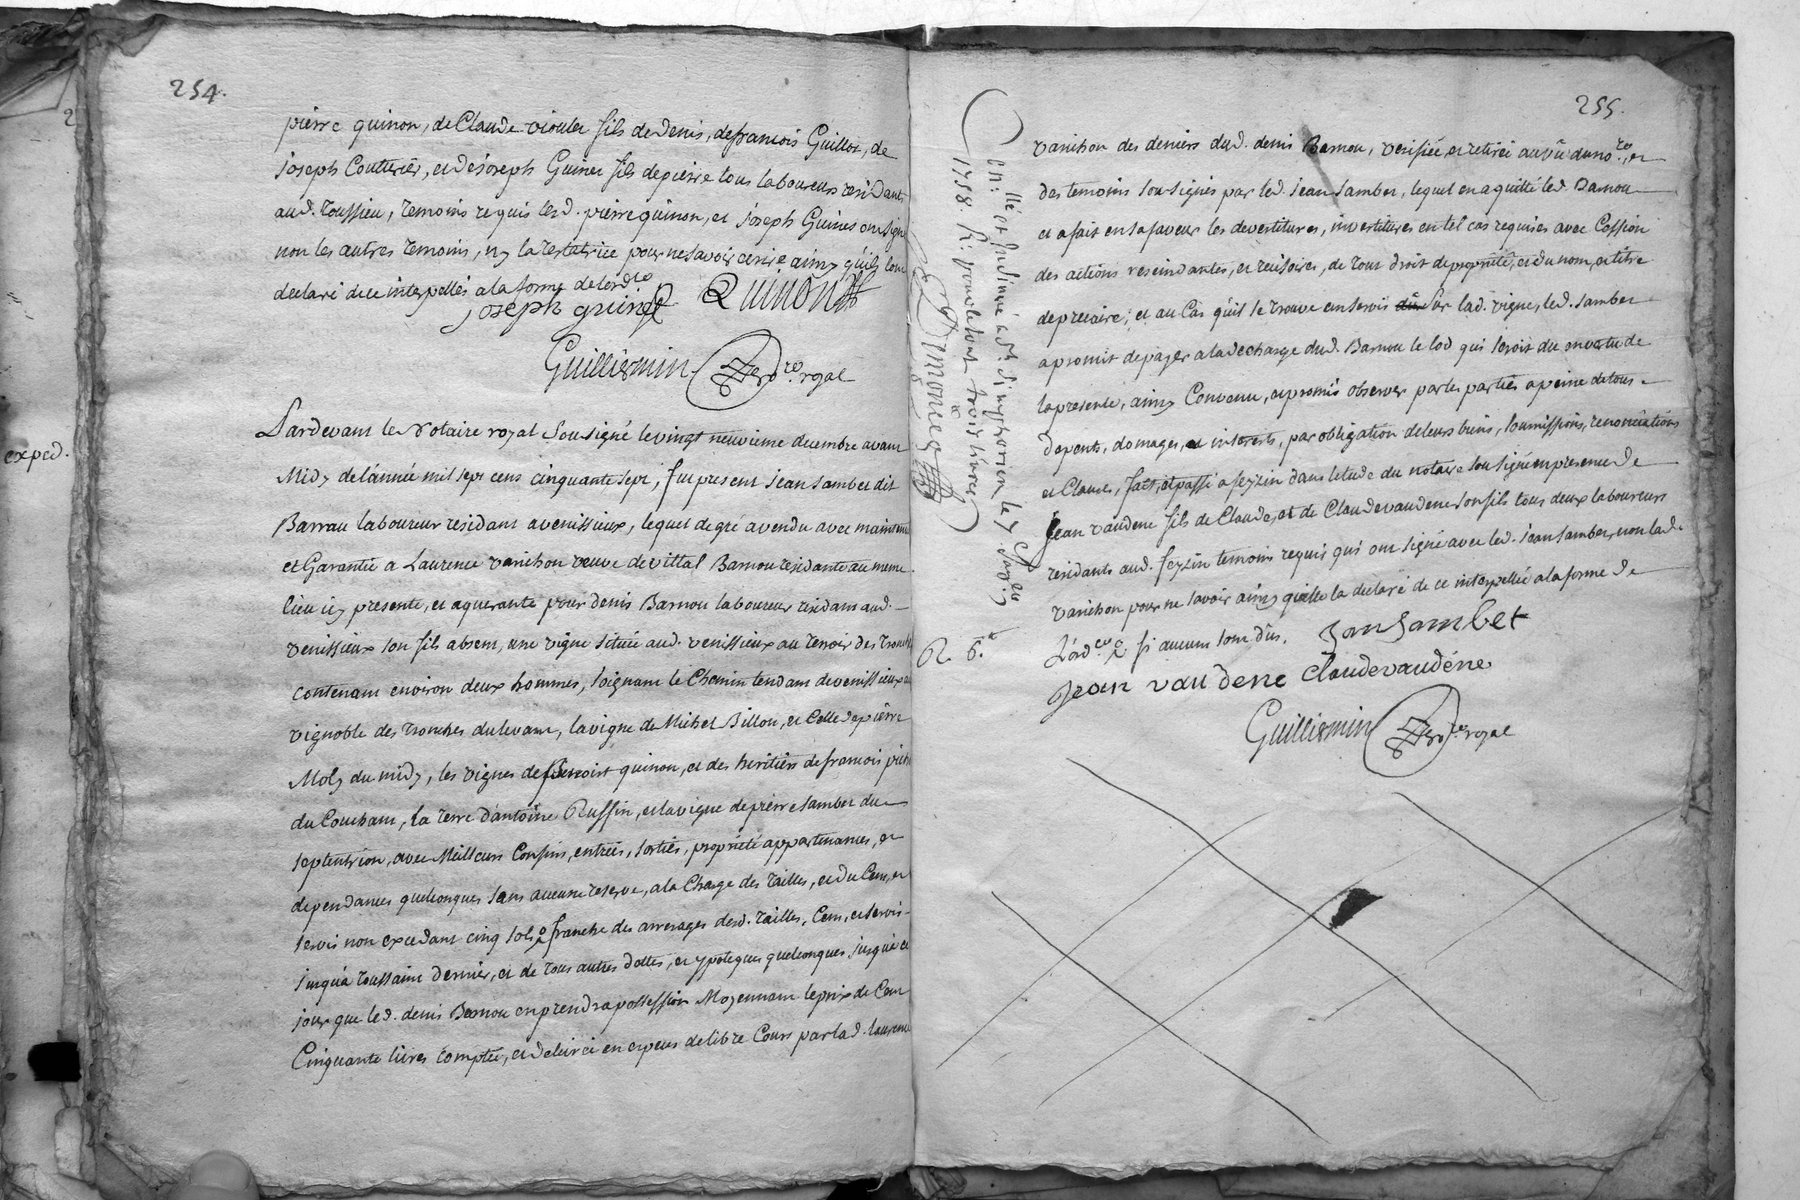 254.
pierre quinon, de Claude viouler fils de denis, de francois Guillot, de
joseph Couturier, et de joseph Guinet fils de pierre tous laboureurs residants
aud. toussieu, temoins requis lesd. pierre quinon, et joseph Guinet ont signé
non les autres temoins, ny la testatrice pour ne savoir ecrire ainsy qu'ils l'ont
declaré de ce interpellés a la forme de l'ord.ce
joseph guinet Quinon
Guilliermin no.re royal
exped.
Pardevant le Notaire royal Sousigné le vingt neuvieme decembre avant
Midy de l'année mil sept cens cinquante sept, fut present jean jambet dit
Barrau laboureur residant a venissieux, lequel de gré a vendu avec maintenue
et Garantie a Laurence vanichon veuve de vittal Barnou residante au meme
lieu icy presente, et aquerante pour denis Barnou laboureur residant aud.
venissieux son fils absent, une vigne située aud. venissieux au terroir des tronches
contenant environ deux hommes, joignant le Chemin tendant de venissieux au
vignoble des tronches du levant, la vigne de Michel Billon, et Celle de pierre
Moly du midy, les vignes de Benoist quinon, et des heritiers de francois
du Couchant, la terre d'antoine Ruffin, et la vigne de pierre jambet du
septentrion, avec Meilleurs Confins, entrées, sorties, proprieté appartenances, et
dependances quelconques sans aucune reserve, a la Charge des tailles, et du Cens, et
servis non excedant cinq sols franche des arrerages desd. tailles, Cens, et servis
jusqu'a toussaint dernier, et de tous autres dettes, et ypoteques quelconques jusqu'a ce
jour que led. denis Barnou en prendra possession Moyennant le prix de Cent
Cinquante livres comptée, et delivré en especes de libre Cours par lad. laurence
255.
vanichon des deniers dud. denis Barnou, verifiée, et retirée au vû du no.re, et
des temoins sousignés par led. jean jambet, lequel en a quitté led. Barnou
et a fait en sa faveur les devestitures, investitures en tel cas requises avec Cession
des actions rescindantes, et recisoires, de tout droit de proprieté, et du nom, et titre
de precaire; et au Cas qu'il se trouve en servis sur lad. vigne, led. jambet
a promit de payer a la decharge dud. Barnou le lod qui seroit du en vertu de
la presente, ainsy Convenu, et promis observer par les parties a peine de tous
depents, domages, et interests, par obligation de leurs biens, soumissions, renonciations
et Clauses, fait, et passé a feyzin dans l'etude du notaire sousigné en presence de
jean vaudene fils de Claude, et de Claude vaudene son fils tous deux laboureurs
residants aud. feyzin temoins requis qui ont signé avec led. jean jambet, non lad.
vanichon pour ne savoir ainsy qu'elle la declaré de ce interpellée a la forme de
l'ord.ce si aucuns sont dus. Jan Jambet
jean vaudene Claude vaudéne
Guilliermin no.re royal
Con: llé et Insinué a St. Simphorien le 7. Janv.
1758. R: pour le tout trois livres
R. 6.